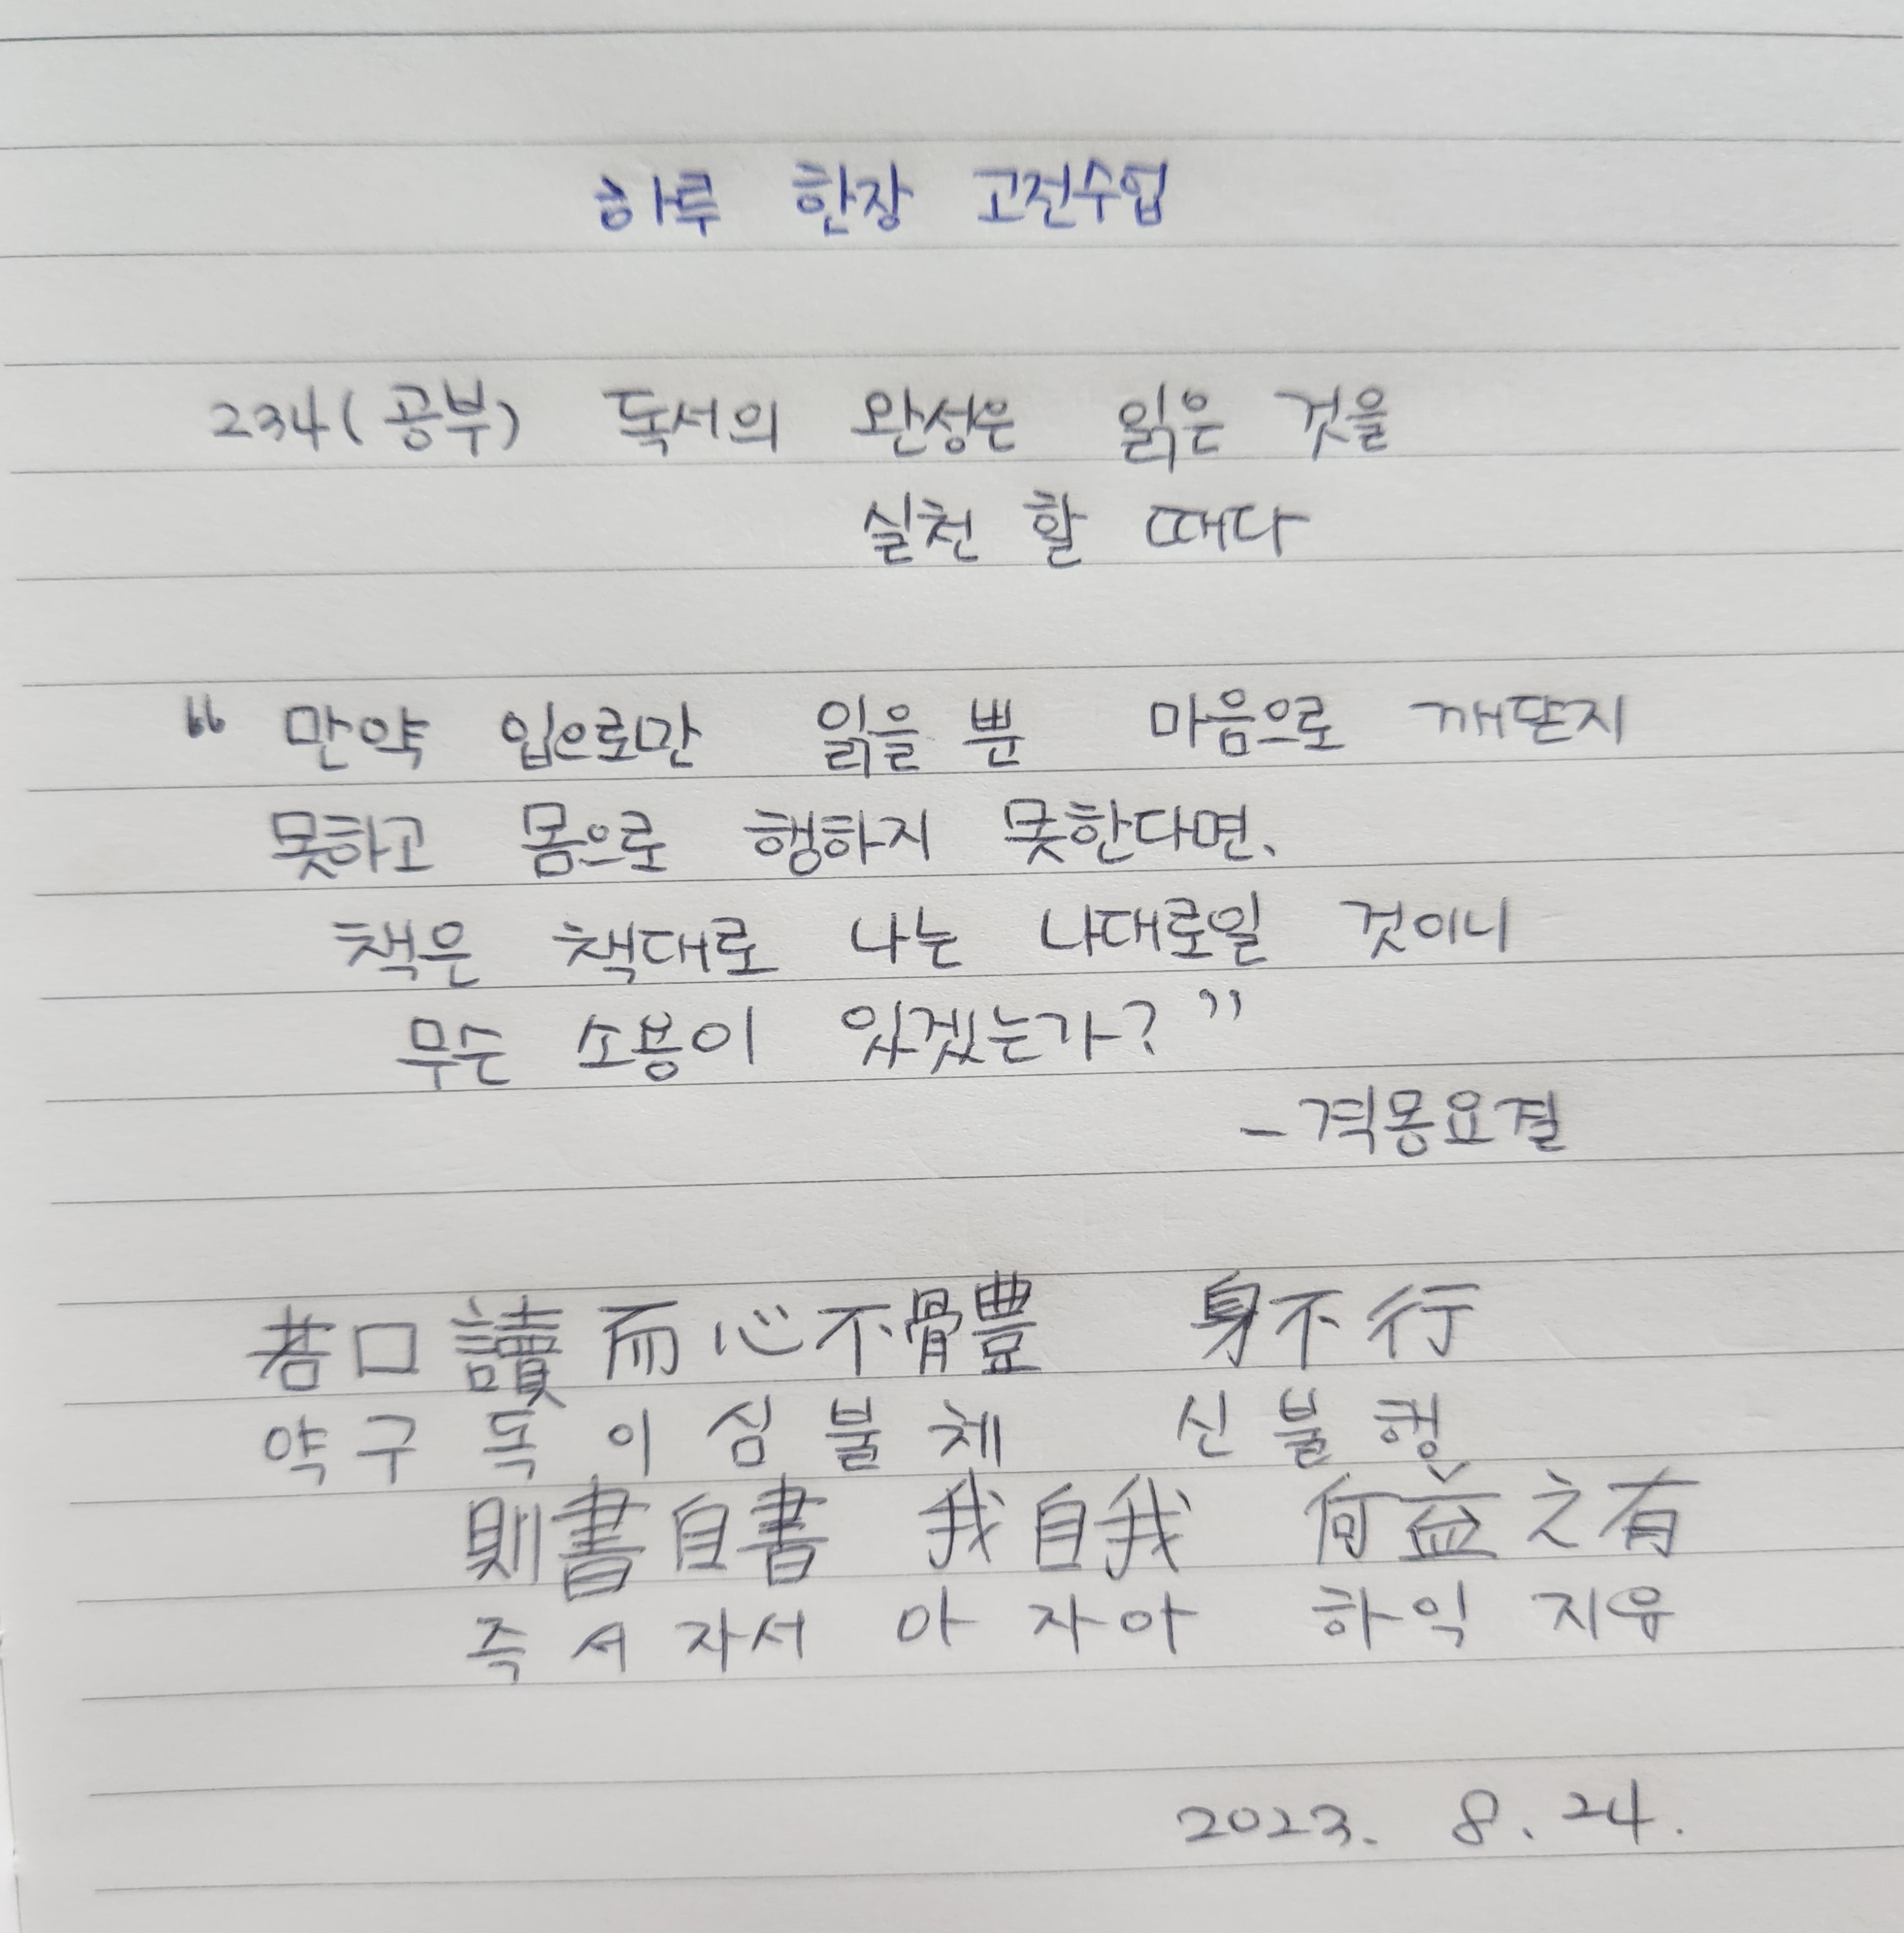 하루 한장 고전수업
234(공부) 독서의 완성은 읽은 것을
실천 할 때다
“ 만약 입으로만 읽을 뿐 마음으로 깨닫지
못하고 몸으로 행하지 못한다면,
책은 책대로 나는 나대로일 것이니
무슨 소용이 있겠는가? ”
- 격몽요결
若口讀而心不體 身不行
약구 독 이 심 불 체 신 불 행
則書自書 我自我 何益之有
즉 서 자서 아 자아 하익 지유
2023. 8. 24.